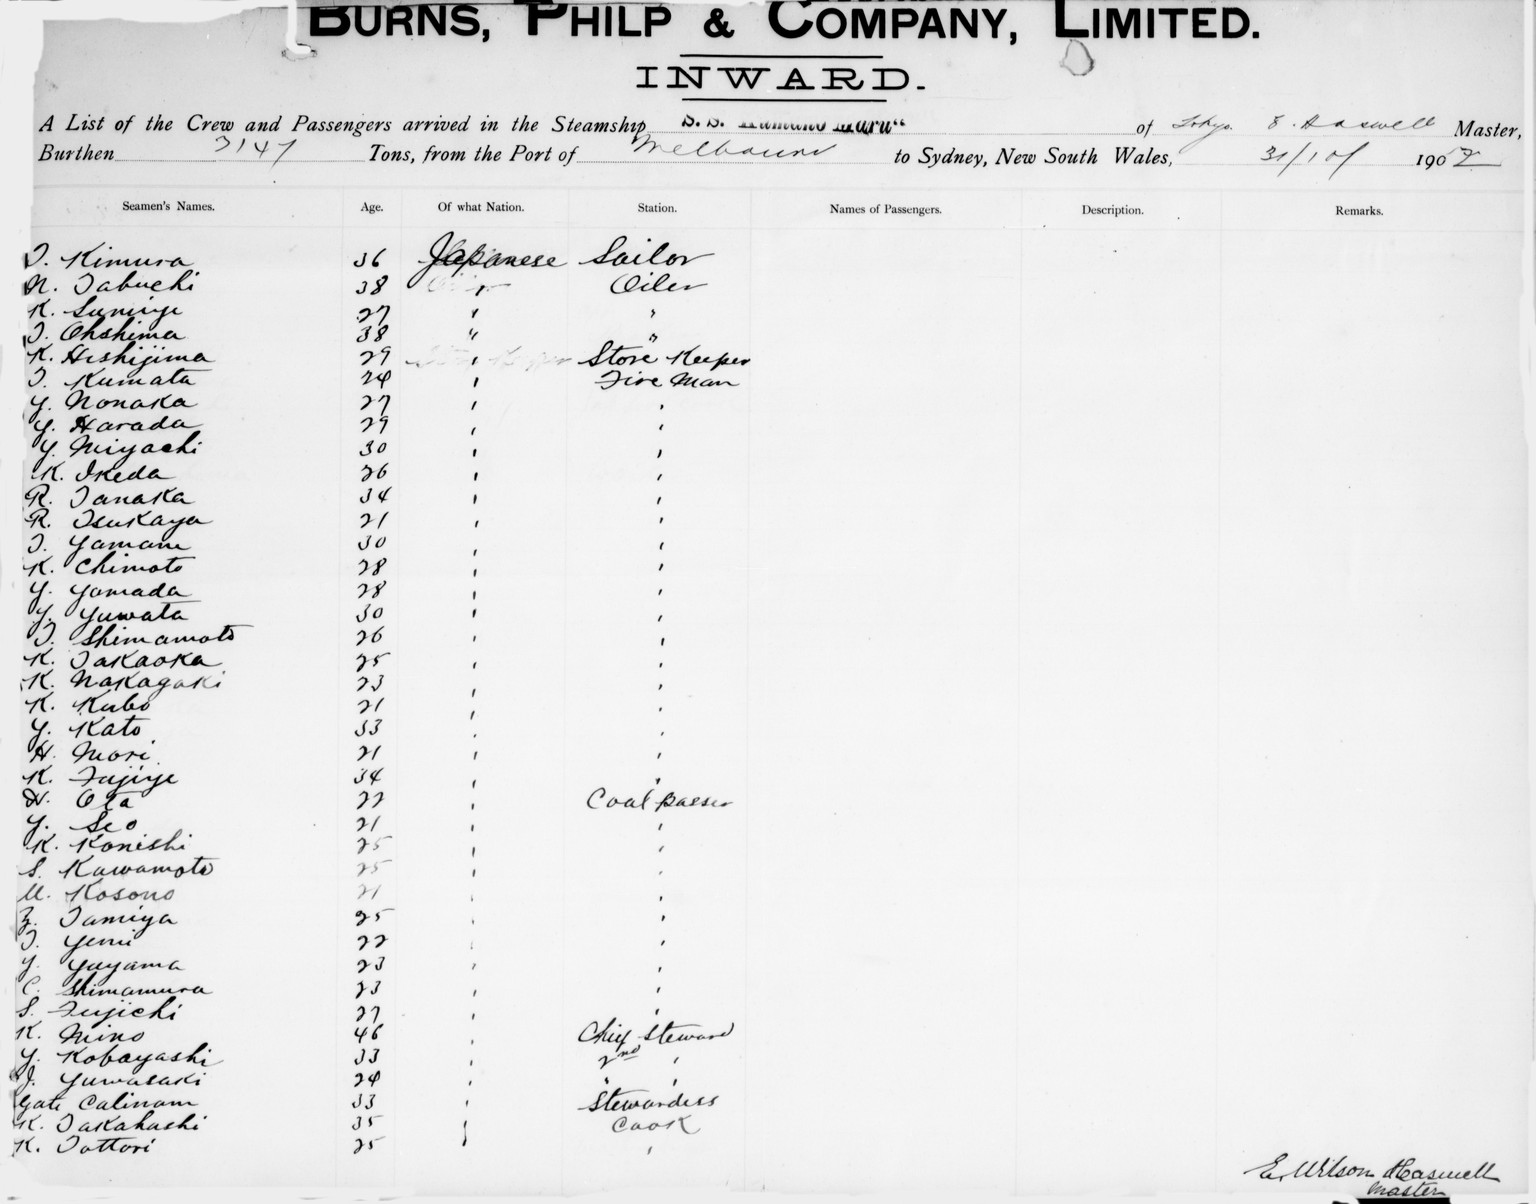 BURNS, PHILP & COMPANY, LIMITED.
INWARD.
A List of the Crew and Passengers arrived in the Steamship S.S. "Kumano Maru" of Tokyo. E. Haswell Master,
Burthen 3147 Tons, from the Port of Melbourne to Sydney, New South Wales, 31/10/ 1902
Seamen's Names. Age. Of what Nation. Station. Names of Passengers. Description. Remarks.
T. Kimura 36 Japanese Sailor
N. Tabuchi 38 " Oiler
K. Sumiye 27 " "
T. Ohshima 38 " "
K. Hishijima 29 " Store Keeper
T. Kumata 24 " Fire Man
Y. Nonaka 27 " "
Y. Harada 29 " "
Y. Miyachi 30 " "
K. Ikeda 26 " "
R. Tanaka 34 " "
R. Tsukaya 21 " "
T. Yamane 30 " "
K. Chimoto 28 " "
Y. Yamada 28 " "
Y. Yuwata 30 " "
T. Shimamoto 26 " "
K. Takaoka 25 " "
K. Nakagaki 23 " "
K. Kubo 21 " "
Y. Kato 33 " "
H. Mori 21 " "
K. Fujiye 34 " "
H. Ota 22 " Coal passer
Y. Seo 21 " "
K. Konishi 25 " "
S. Kawamoto 25 " "
U. Kosono 21 " "
Z. Tamiya 25 " "
T. Yemi 22 " "
Y. Yuyama 23 " "
C. Shimamura 23 " "
S. Fujichi 27 " "
K. Mino 46 " Chief Steward
Y. Kobayashi 33 " 2nd "
J. Yuwasaki 24 " " "
Calinam 33 " Stewardess
K. Takahashi 35 " Cook
K. Tottori 25 " "
E. Wilson Haswell
Master